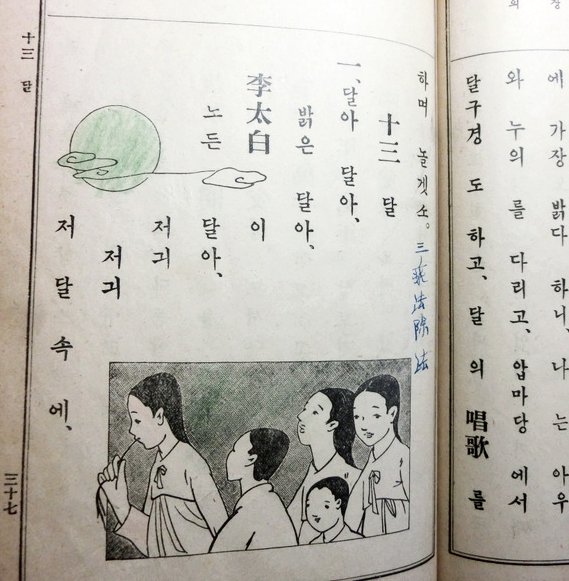 에 가장 밝다 하니, 나는 아우
와 누의를 다리고, 압마당에서
달구경도 하고, 달의 唱歌를
하며 놀겟소。
三乘法除法
十三 달
一、달아 달아、
밝은 달아、
李太白이
노든 달아、
저긔
저긔
저 달 속에、
十三 달
三十七